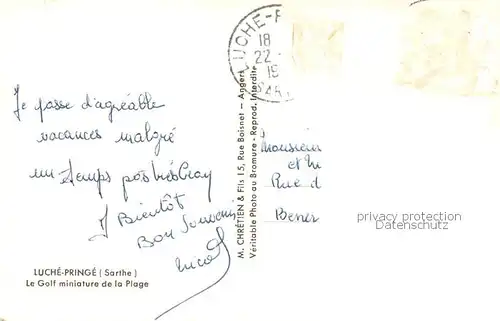 LUCHÉ-P
18
22
19
Je passe d'agréable
vacances malgré
un temps pas très
Bientôt
Bon Souvenir
Nico
LUCHÉ-PRINGÉ (Sarthe)
Le Golf miniature de la Plage
M. CHRÉTIEN & Fils 15, Rue Boisnet — Angers
Véritable Photo au Bromure - Reprod. Interdite
Monsieur
et M
Rue d
privacy protection
Datenschutz